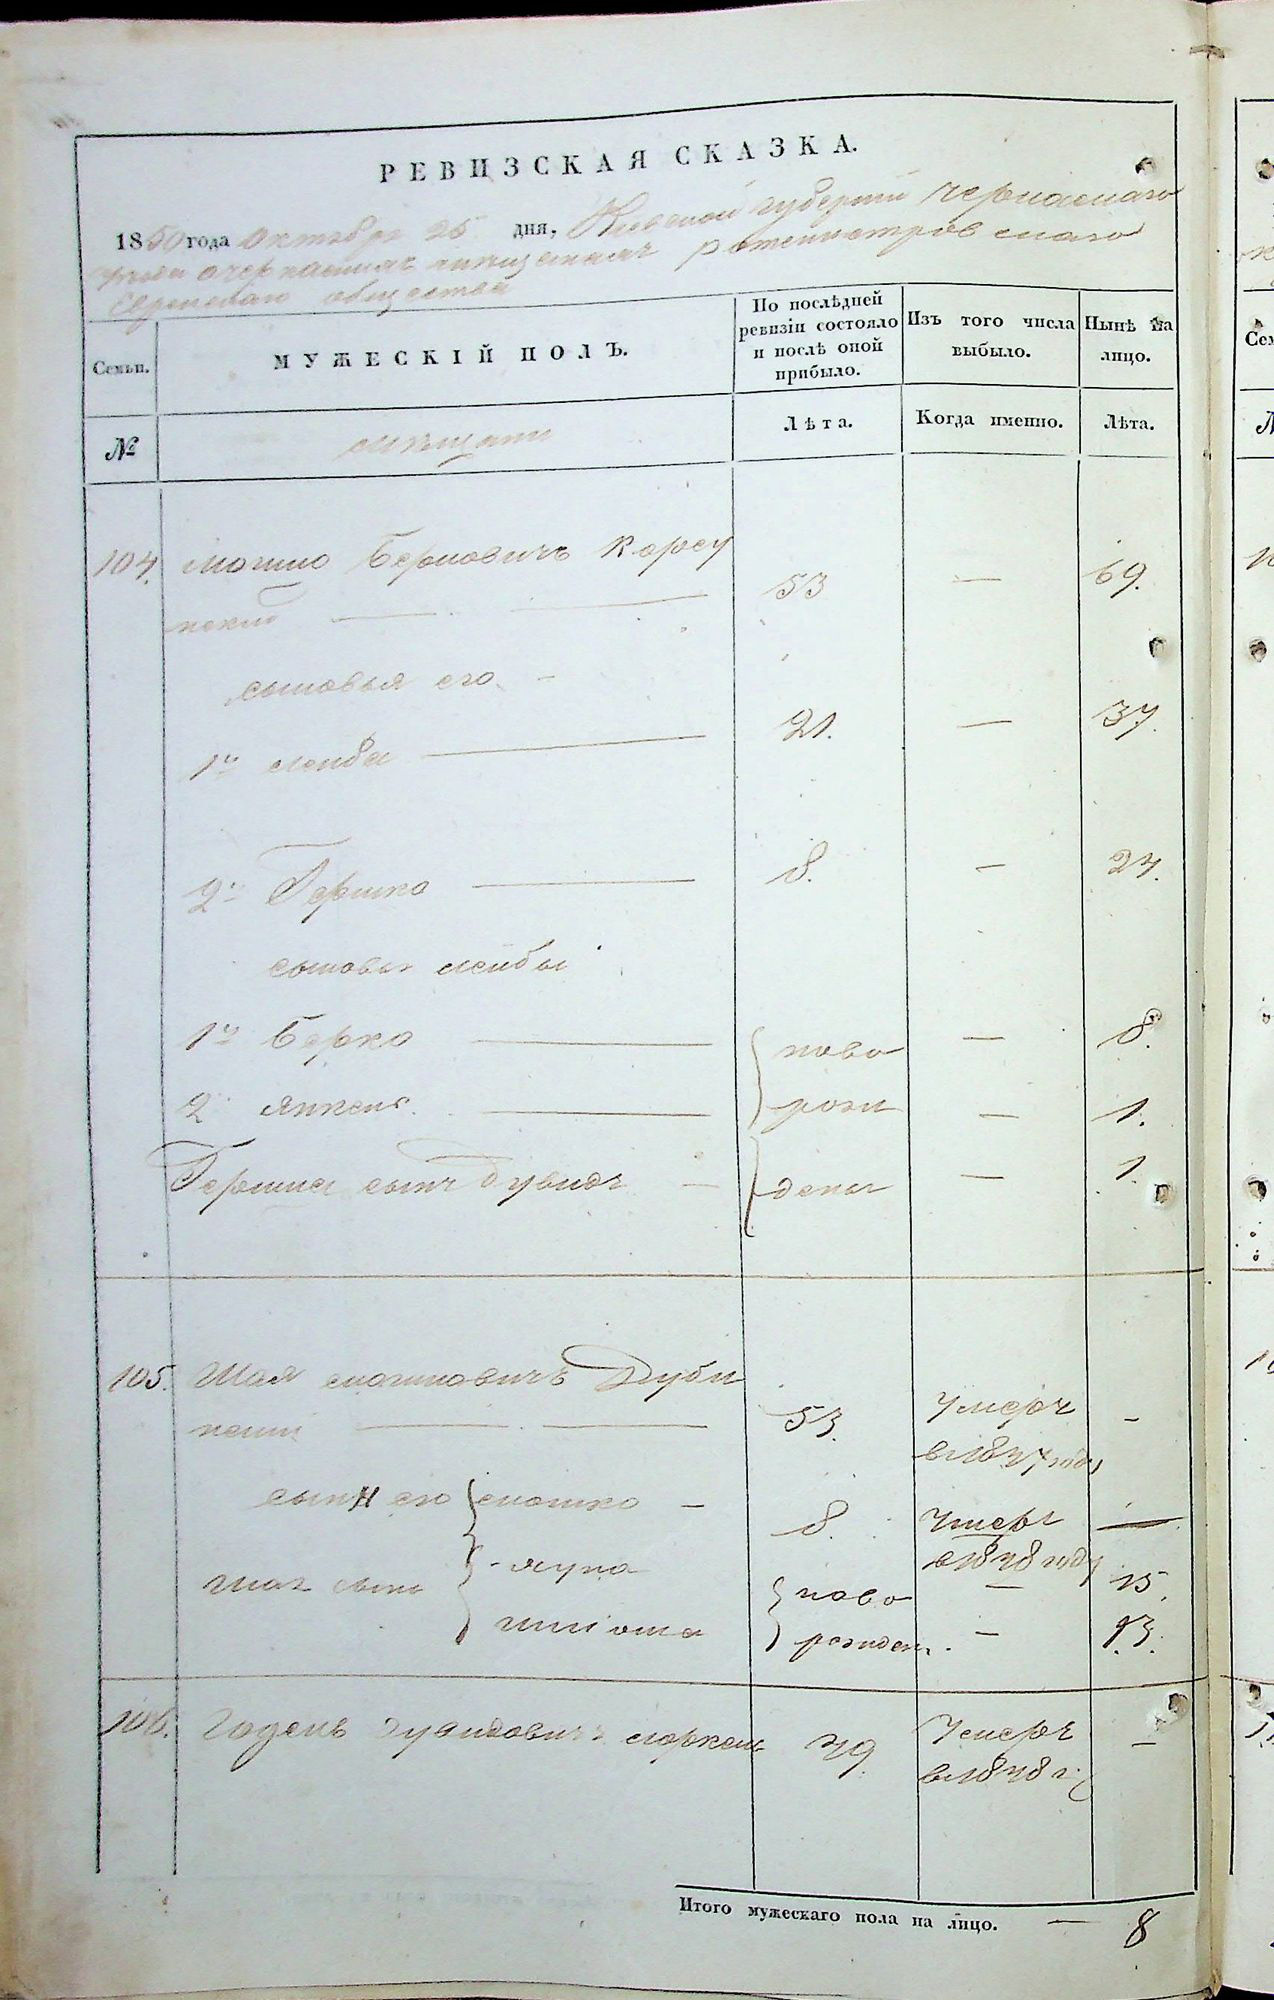 РЕВИЗСКАЯ СКАЗКА.
1850 года Октября 25 дня, Киевской губернии Черкаскаго
уезда о черкаских мещанах ротмистровскаго
Еврейскаго общества
Семьи.
МУЖЕСКІЙ ПОЛЪ.
По послѣдней ревизіи состояло и послѣ оной прибыло.
Изъ того числа выбыло.
Нынѣ на лицо.
№
мещане
Лѣта.
Когда именно.
Лѣта.
104. Мошко Берковичъ Корсу
нский — 53 — 69.
сыновья его
1й Лейба — 21. — 37.
2й Гершко — 8. — 24.
сыновья Лейбы
1й Берко — ново — 8.
2й Янкель — рож — 1.
Гершка сынъ Дувидъ — дены — 1.
105. Шая Мошковичъ Дуби
нский — 53. Умеръ —
в 1847 году
сынъ его Мошко — 8. Умеръ —
в 1848 году
Шаи сыны ново — 15.
рожден. — 13.
106. Дувидовичъ 49. Умеръ —
в 1848 г.
Итого мужескаго пола на лицо. — 8